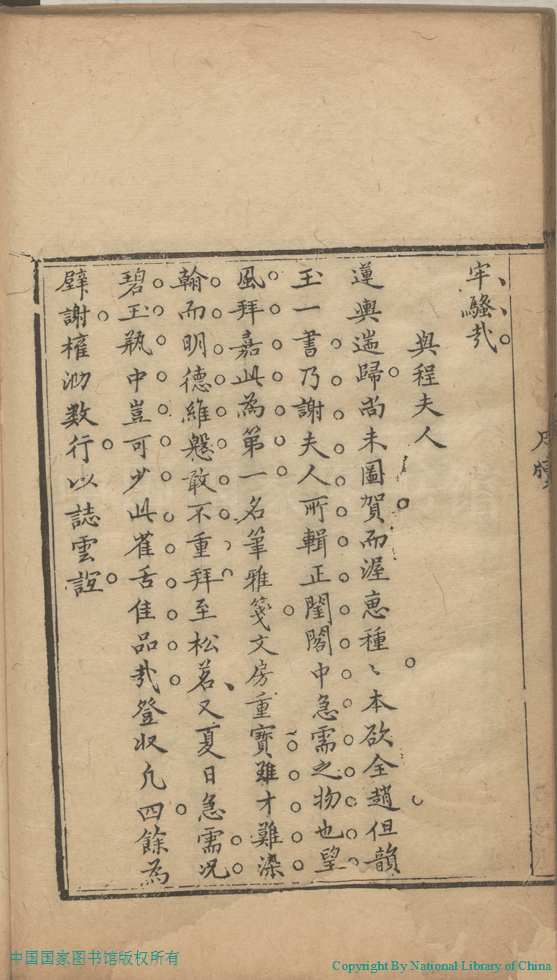 牢騷哉
與程夫人
蓮輿遄歸尚未圖賀而渥惠種種本欲全趙但韻
玉一書乃謝夫人所輯正閨閣中急需之物也望
風拜嘉此為第一名筆雅箋文房重寶雖才難染
翰而明德維慇敢不重拜至松茗又夏日急需況
碧玉瓶中豈可少此雀舌佳品哉登收凢四餘為
璧謝榷泐数行以誌雲誼
中国国家图书馆版权所有
Copyright By National Library of China